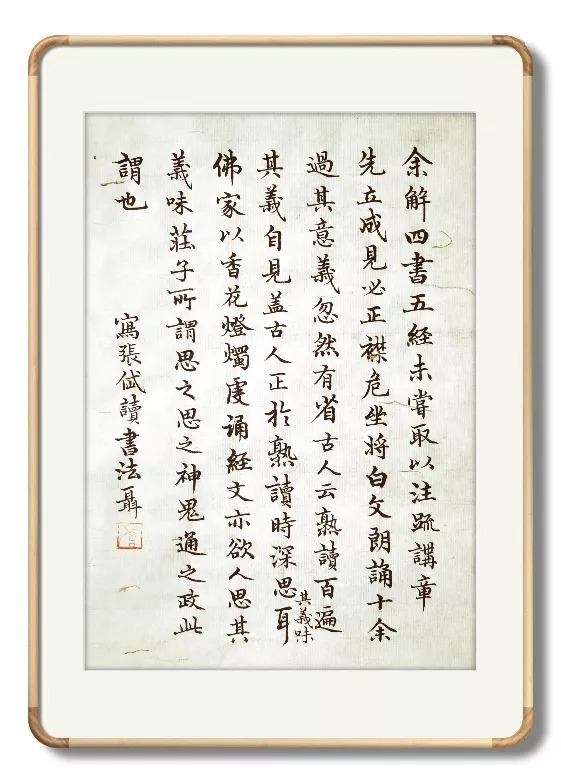 余解四書五經未嘗取以注疏講章
先立成見必正襟危坐將白文朗誦十余
過其意義忽然有省古人云熟讀百遍
其義自見盖古人正於熟讀時深思耳
其義味
佛家以香花燈燭虔誦經文亦欲人思其
義味莊子所謂思之思之神鬼通之政此
謂也
寫張伏讀書法聶